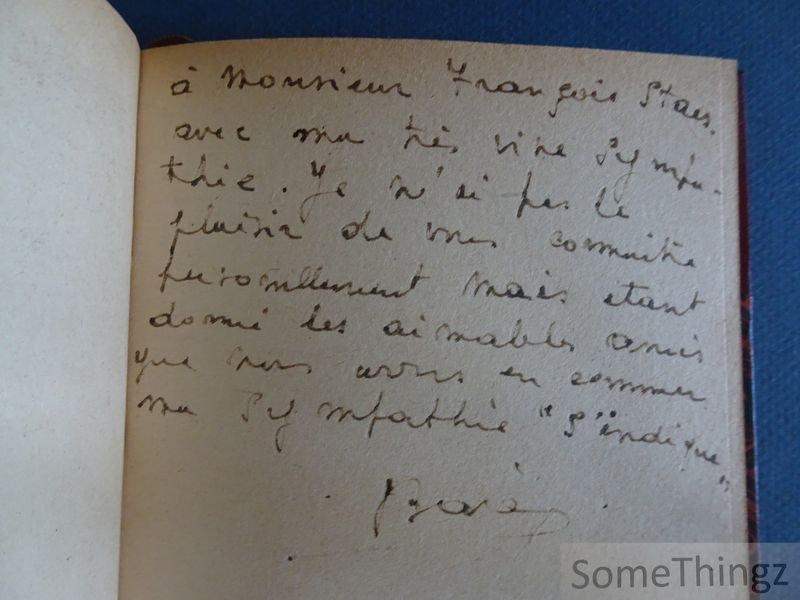 à Monsieur François Staes.
avec ma très vive sympa-
thie. Je n'ai pas le
plaisir de vous connaître
personellement mais étant
donné les aimables amis
que nous avons en commun
ma sympathie "s'indique"
SomeThingz